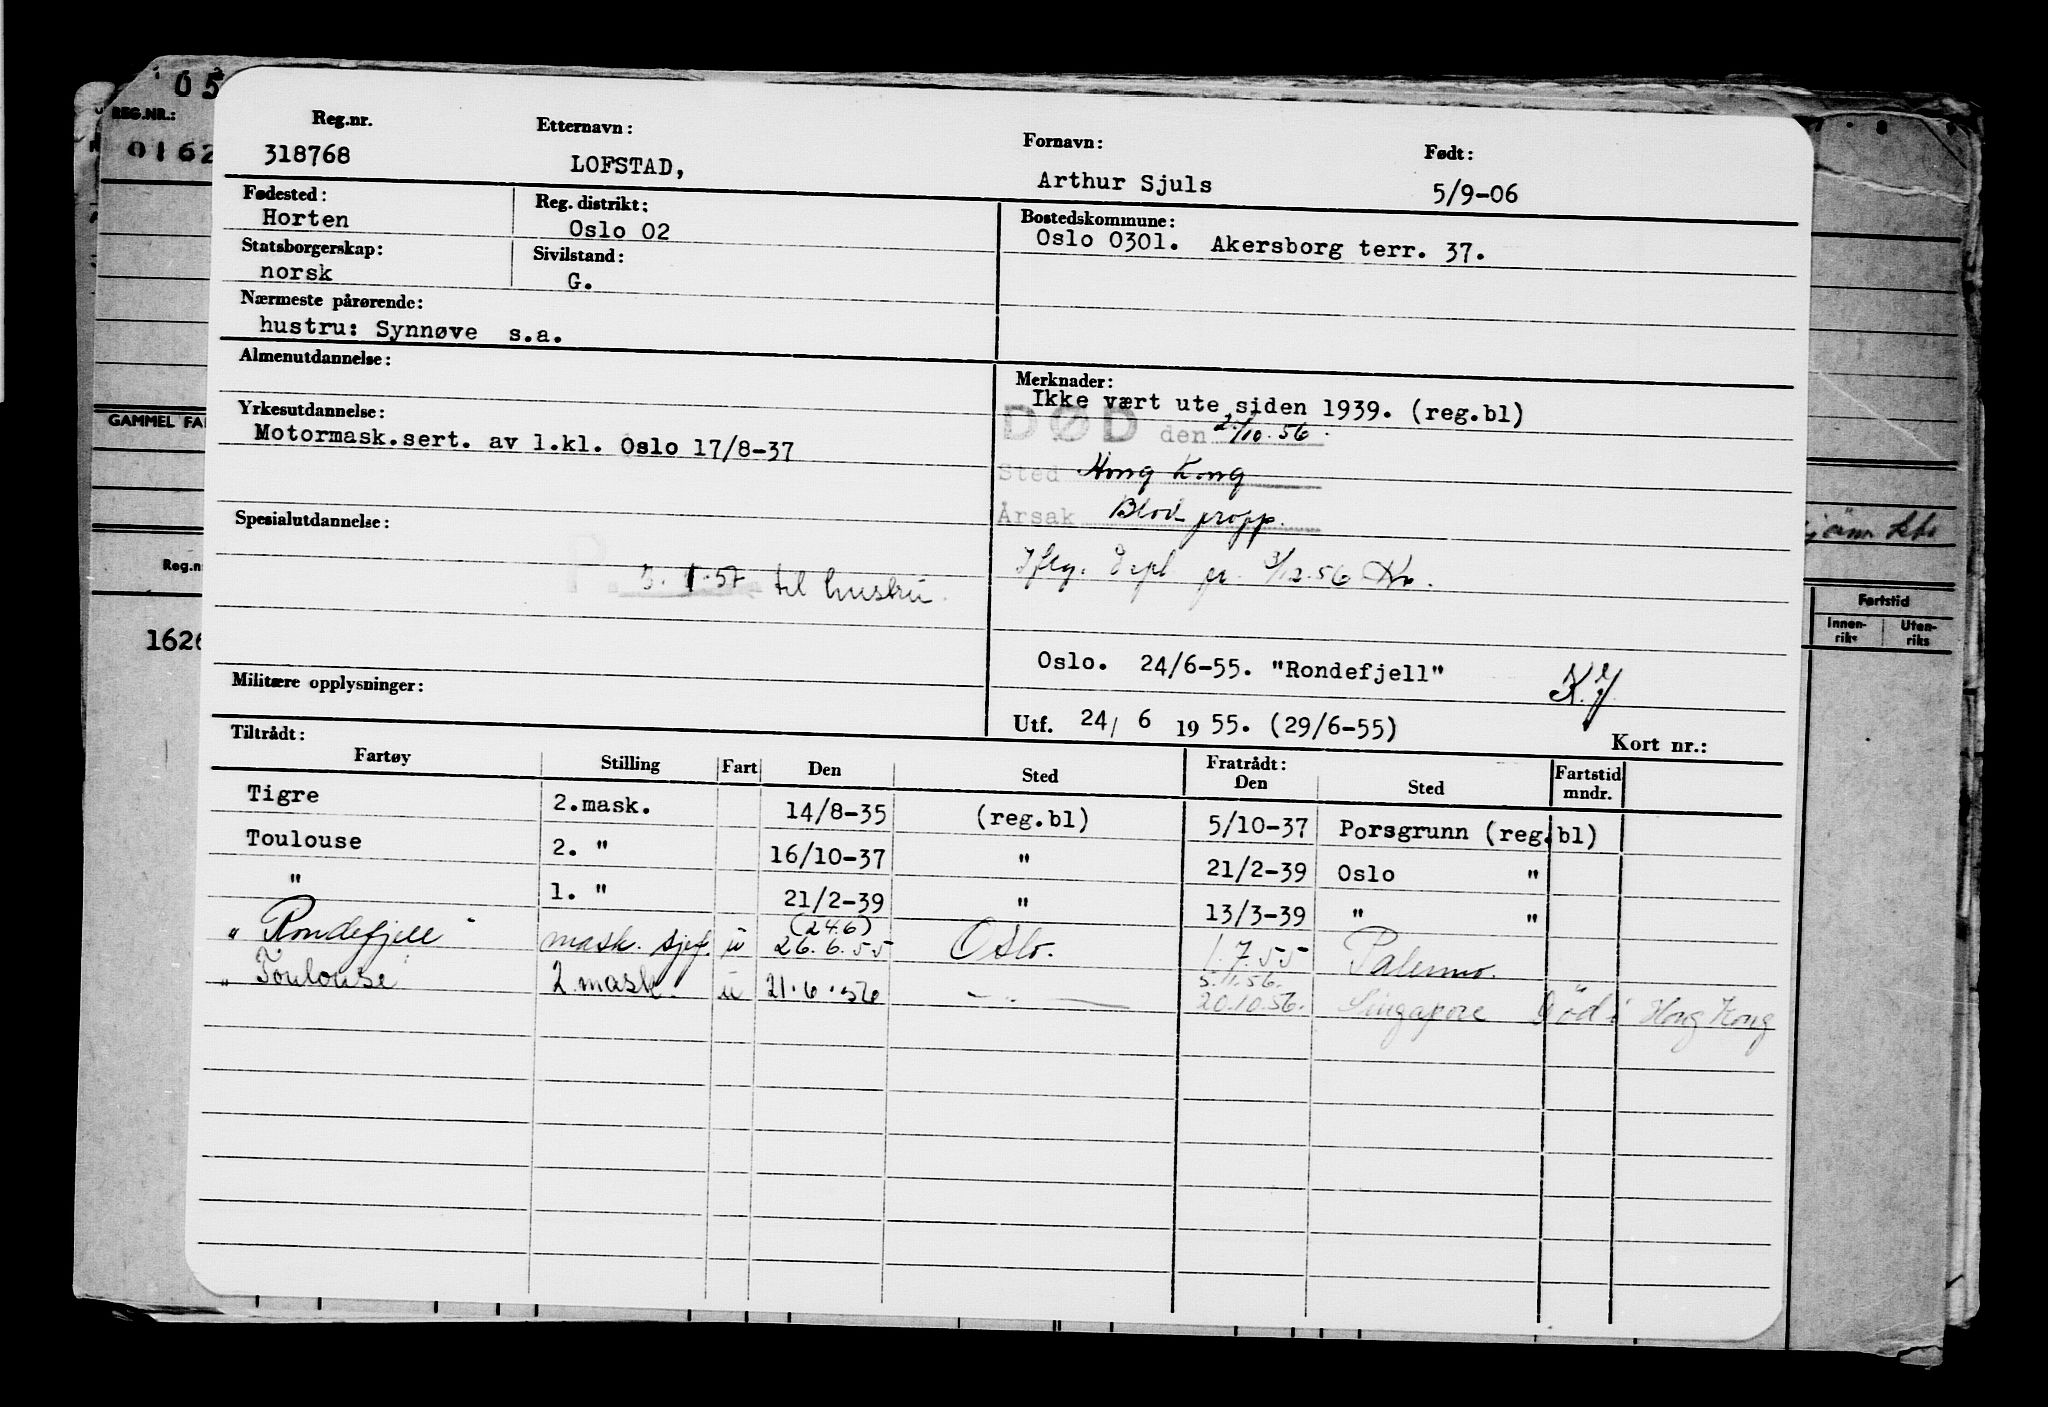 05
REG.NR.:
0162
GAMMEL FA
Reg.n
1626
Reg.nr. Etternavn: Fornavn: Født:
318768 LOFSTAD, Arthur Sjuls 5/9-06
Fødested: Reg. distrikt: Bostedskommune:
Horten Oslo 02 Oslo 0301. Akersborg terr. 37.
Statsborgerskap: Sivilstand:
norsk G.
Nærmeste pårørende:
hustru: Synnøve s.a.
Almenutdannelse:
Merknader:
Ikke vært ute siden 1939. (reg.bl)
Yrkesutdannelse:
Motormask.sert. av 1.kl. Oslo 17/8-37
DØD den /10.56.
Sted Hong Kong
Årsak Blod propp.
Spesialutdannelse:
Iflg. pr. 3/12.56
P. 5.1.57 til hustru.
Oslo. 24/6-55. "Rondefjell"
Militære opplysninger:
Utf. 24/ 6 1955. (29/6-55) Kort nr.:
Tiltrådt: Fratrådt:
Fartøy Stilling Fart Den Sted Den Sted Fartstid mndr.
Tigre 2.mask. 14/8-35 (reg.bl) 5/10-37 Porsgrunn (reg.bl)
Toulouse 2. " 16/10-37 " 21/2-39 Oslo "
" 1. " 21/2-39 " 13/3-39 " "
(24.6)
" Rondefjell " mask. sjef. u 26.6.55 Oslo. 1.7.55 Palermo.
5.11.56.
" Toulouse " 2 mask. u 21.6.56 - " - 20.10.56. Singapore Død i Hong Kong
Fartstid
Innen-riks Uten-riks